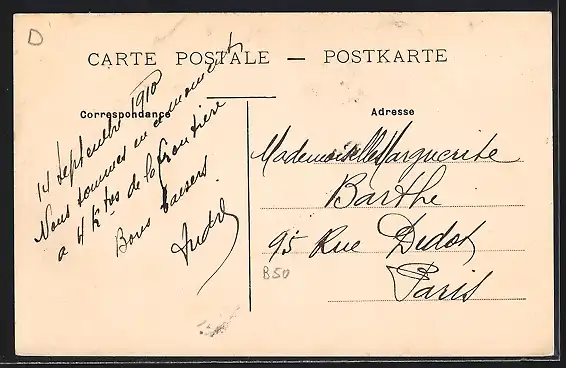 D
CARTE POSTALE — POSTKARTE
Correspondance
Adresse
14 Septembre 1910
Nous sommes en ce moment
a 4 Ktos de la frontière
Bons baisers
André
Mademoiselle Marguerite
Barthe
95 Rue Didot
Paris
B50